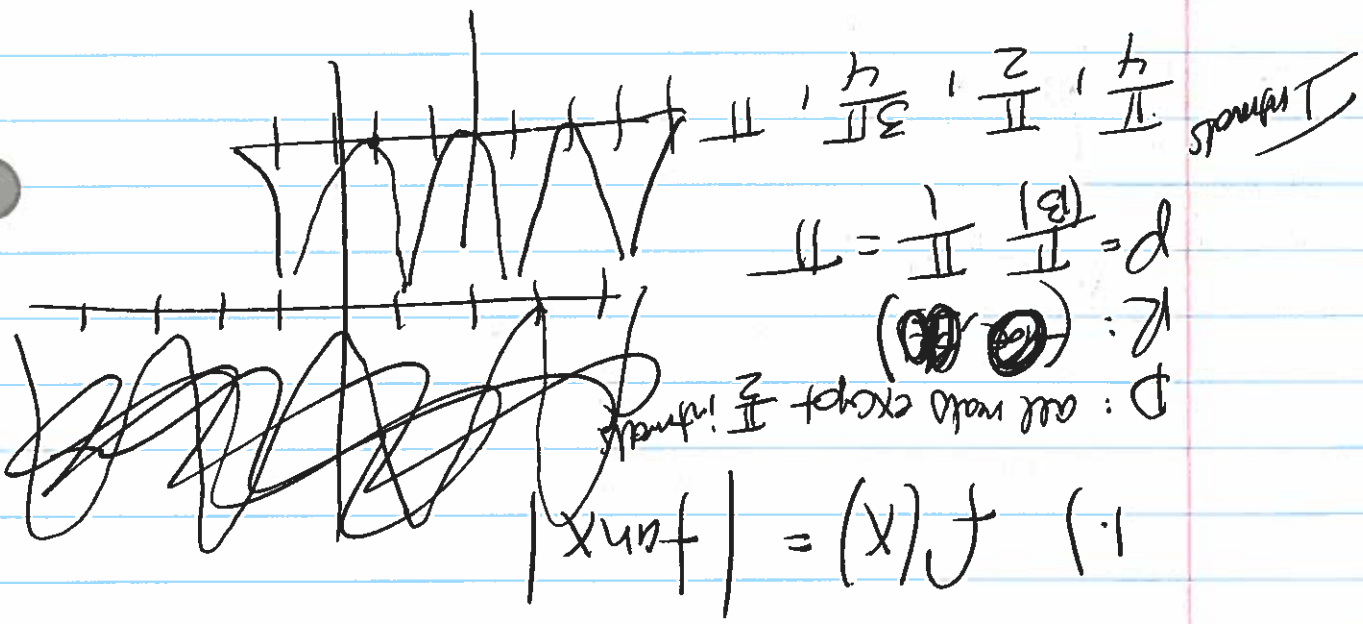 1.) f(x) = |tanx|
D: all reals except π/2 intervals
R: (
P = π/|B| π/1 = π
Intervals π/4, π/2, 3π/4, π